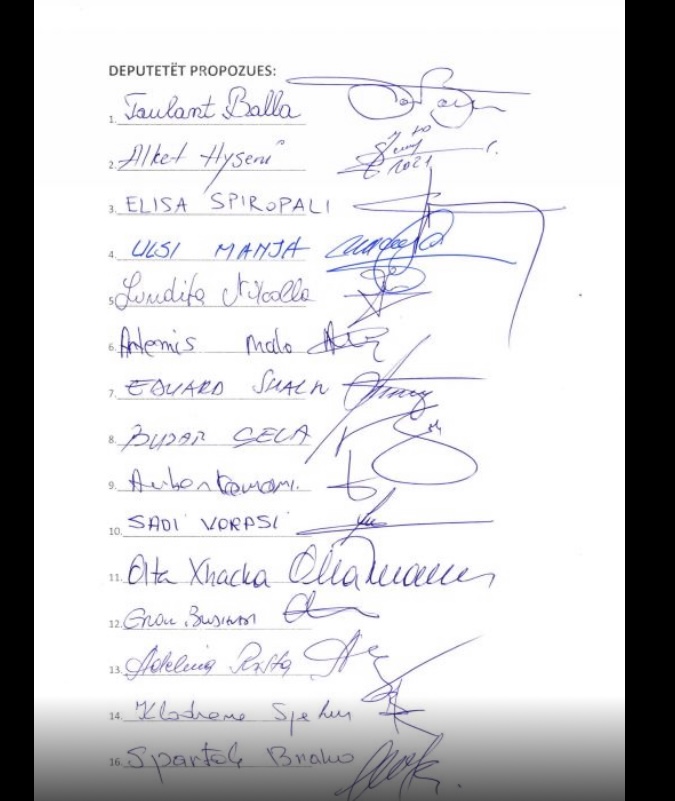 DEPUTETËT PROPOZUES:
1. Taulant Balla
2. Alket Hyseni
3. ELISA SPIROPALI
4. ULSI MANJA
5. Lindita Nikolla
6. Artemis Malo
7. EDUARD SHALSI
8. BUJAR ÇELA
9. Arben
10. SADI VORPSI
11. Olta Xhacka
12. Grau
13. Adelina Rista
14. Klodiana Spahiu
16. Spartak Braho